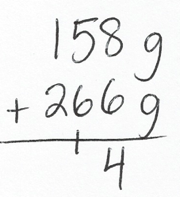 158 g
+ 266 g
1
4